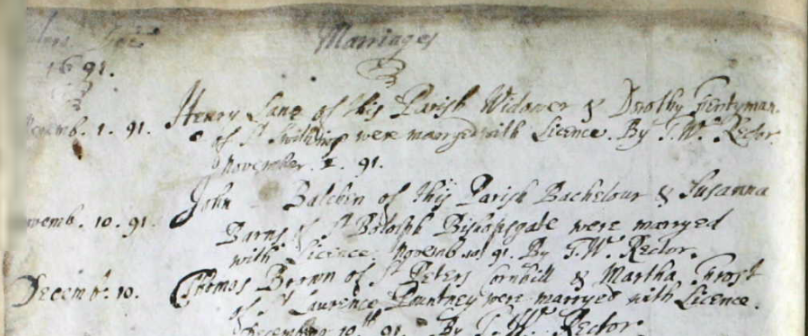 Marriages
1691.
Novemb. 1. 91. Henry Lane of this Parish Widower & Dorothy Fentyman
of St Swithins were marryed with Licence. By T. W. Rector.
November. 1. 91.
John Balchin of this Parish Bachelour & Susanna
Novemb. 10. 91. Barns of St Botolph Bishopsgate were marryed
with Licence. Novemb. 10. 91. By T. W. Rector.
Decembr. 10. Thomas Brown of St Peters Cornhill & Martha Frost
of St Laurence Pountney were marryed with Licence.
December 10th 91. By T. W. Rector.